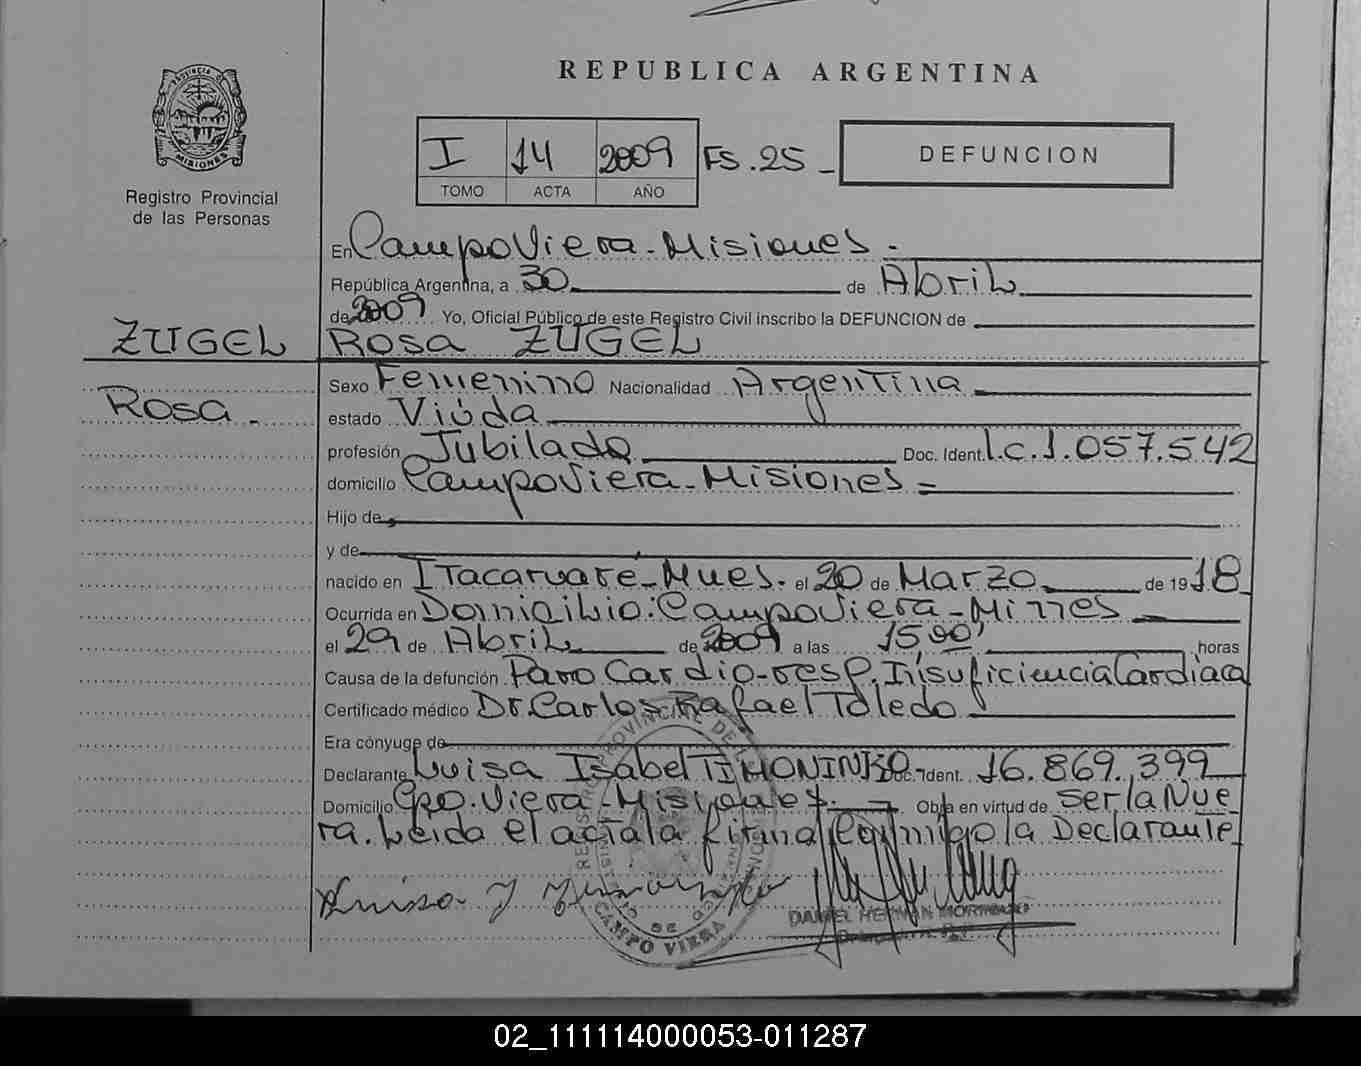 REPUBLICA ARGENTINA
PROVINCIA DE
MISIONES
Registro Provincial
de las Personas
I 14 2009 FS. 25 -
TOMO ACTA AÑO
DEFUNCION
En Campo Viera - Misiones -
República Argentina, a 30 de Abril
de 2009 Yo, Oficial Público de este Registro Civil inscribo la DEFUNCION de
ZUGEL Rosa ZUGEL
Rosa -
Sexo Femenino Nacionalidad Argentina
estado Viúda
profesión Jubilado Doc. Ident. l.c. 1.057.542
domicilio Campo Viera - Misiones =
Hijo de
y de
nacido en Itacaruaré - Mnes. el 20 de Marzo de 1918
Ocurrida en Domicilio: Campo Viera - Minnes
el 29 de Abril de 2009 a las 15,00' horas
Causa de la defunción Paro Cardio-resp. Insuficiencia Cardiaca
Certificado médico Dr Carlos Rafael Toledo
Era cónyuge de
Declarante Luisa Isabel TIMONINKO Doc. Ident. 16.869.399
Domicilio Cpo. Viera - Misiones. - Obra en virtud de ser la Nue
ra. Leida el acta la firma conmigo la Declarante
Luisa I
CAMPO VIERA
DANIEL HERNAN
02_111114000053-011287